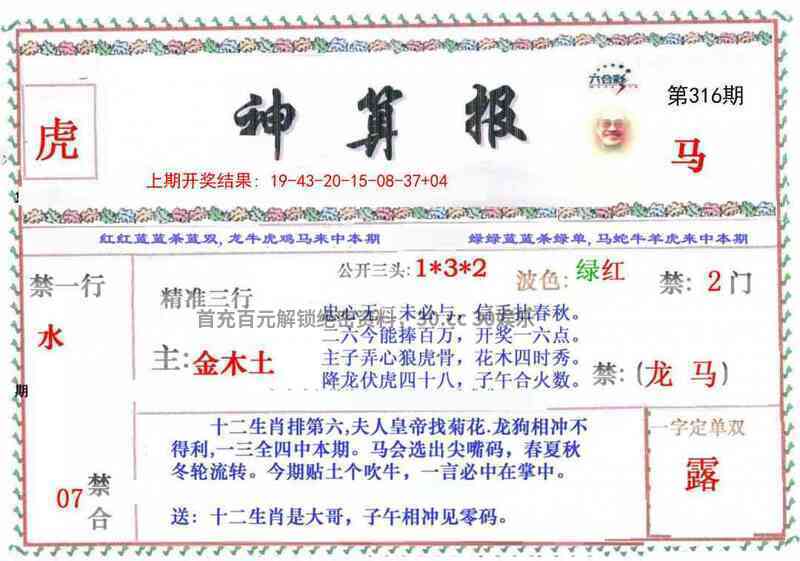 六合彩
第316期
虎
神算报
马
上期开奖结果：19-43-20-15-08-37+04
红红蓝蓝杀蓝双,龙牛虎鸡马来中本期
绿绿蓝蓝杀绿单,马蛇牛羊虎来中本期
禁一行
水
精准三行
主:金木土
公开三头:1*3*2
波色:绿红
禁:2门
忠心无 未必亏，信手抽春秋。
首充百元解锁绝密资料，30.cc
二六今能捧百万，开奖一六点。
主子弄心狼虎骨，花木四时秀。
降龙伏虎四十八，子午合火数。
禁:(龙 马)
期
十二生肖排第六,夫人皇帝找菊花.龙狗相冲不
得利,一三全四中本期。马会选出尖嘴码，春夏秋
冬轮流转。今期贴土个吹牛，一言必中在掌中。
送：十二生肖是大哥，子午相冲见零码。
07
禁合
一字定单双
露